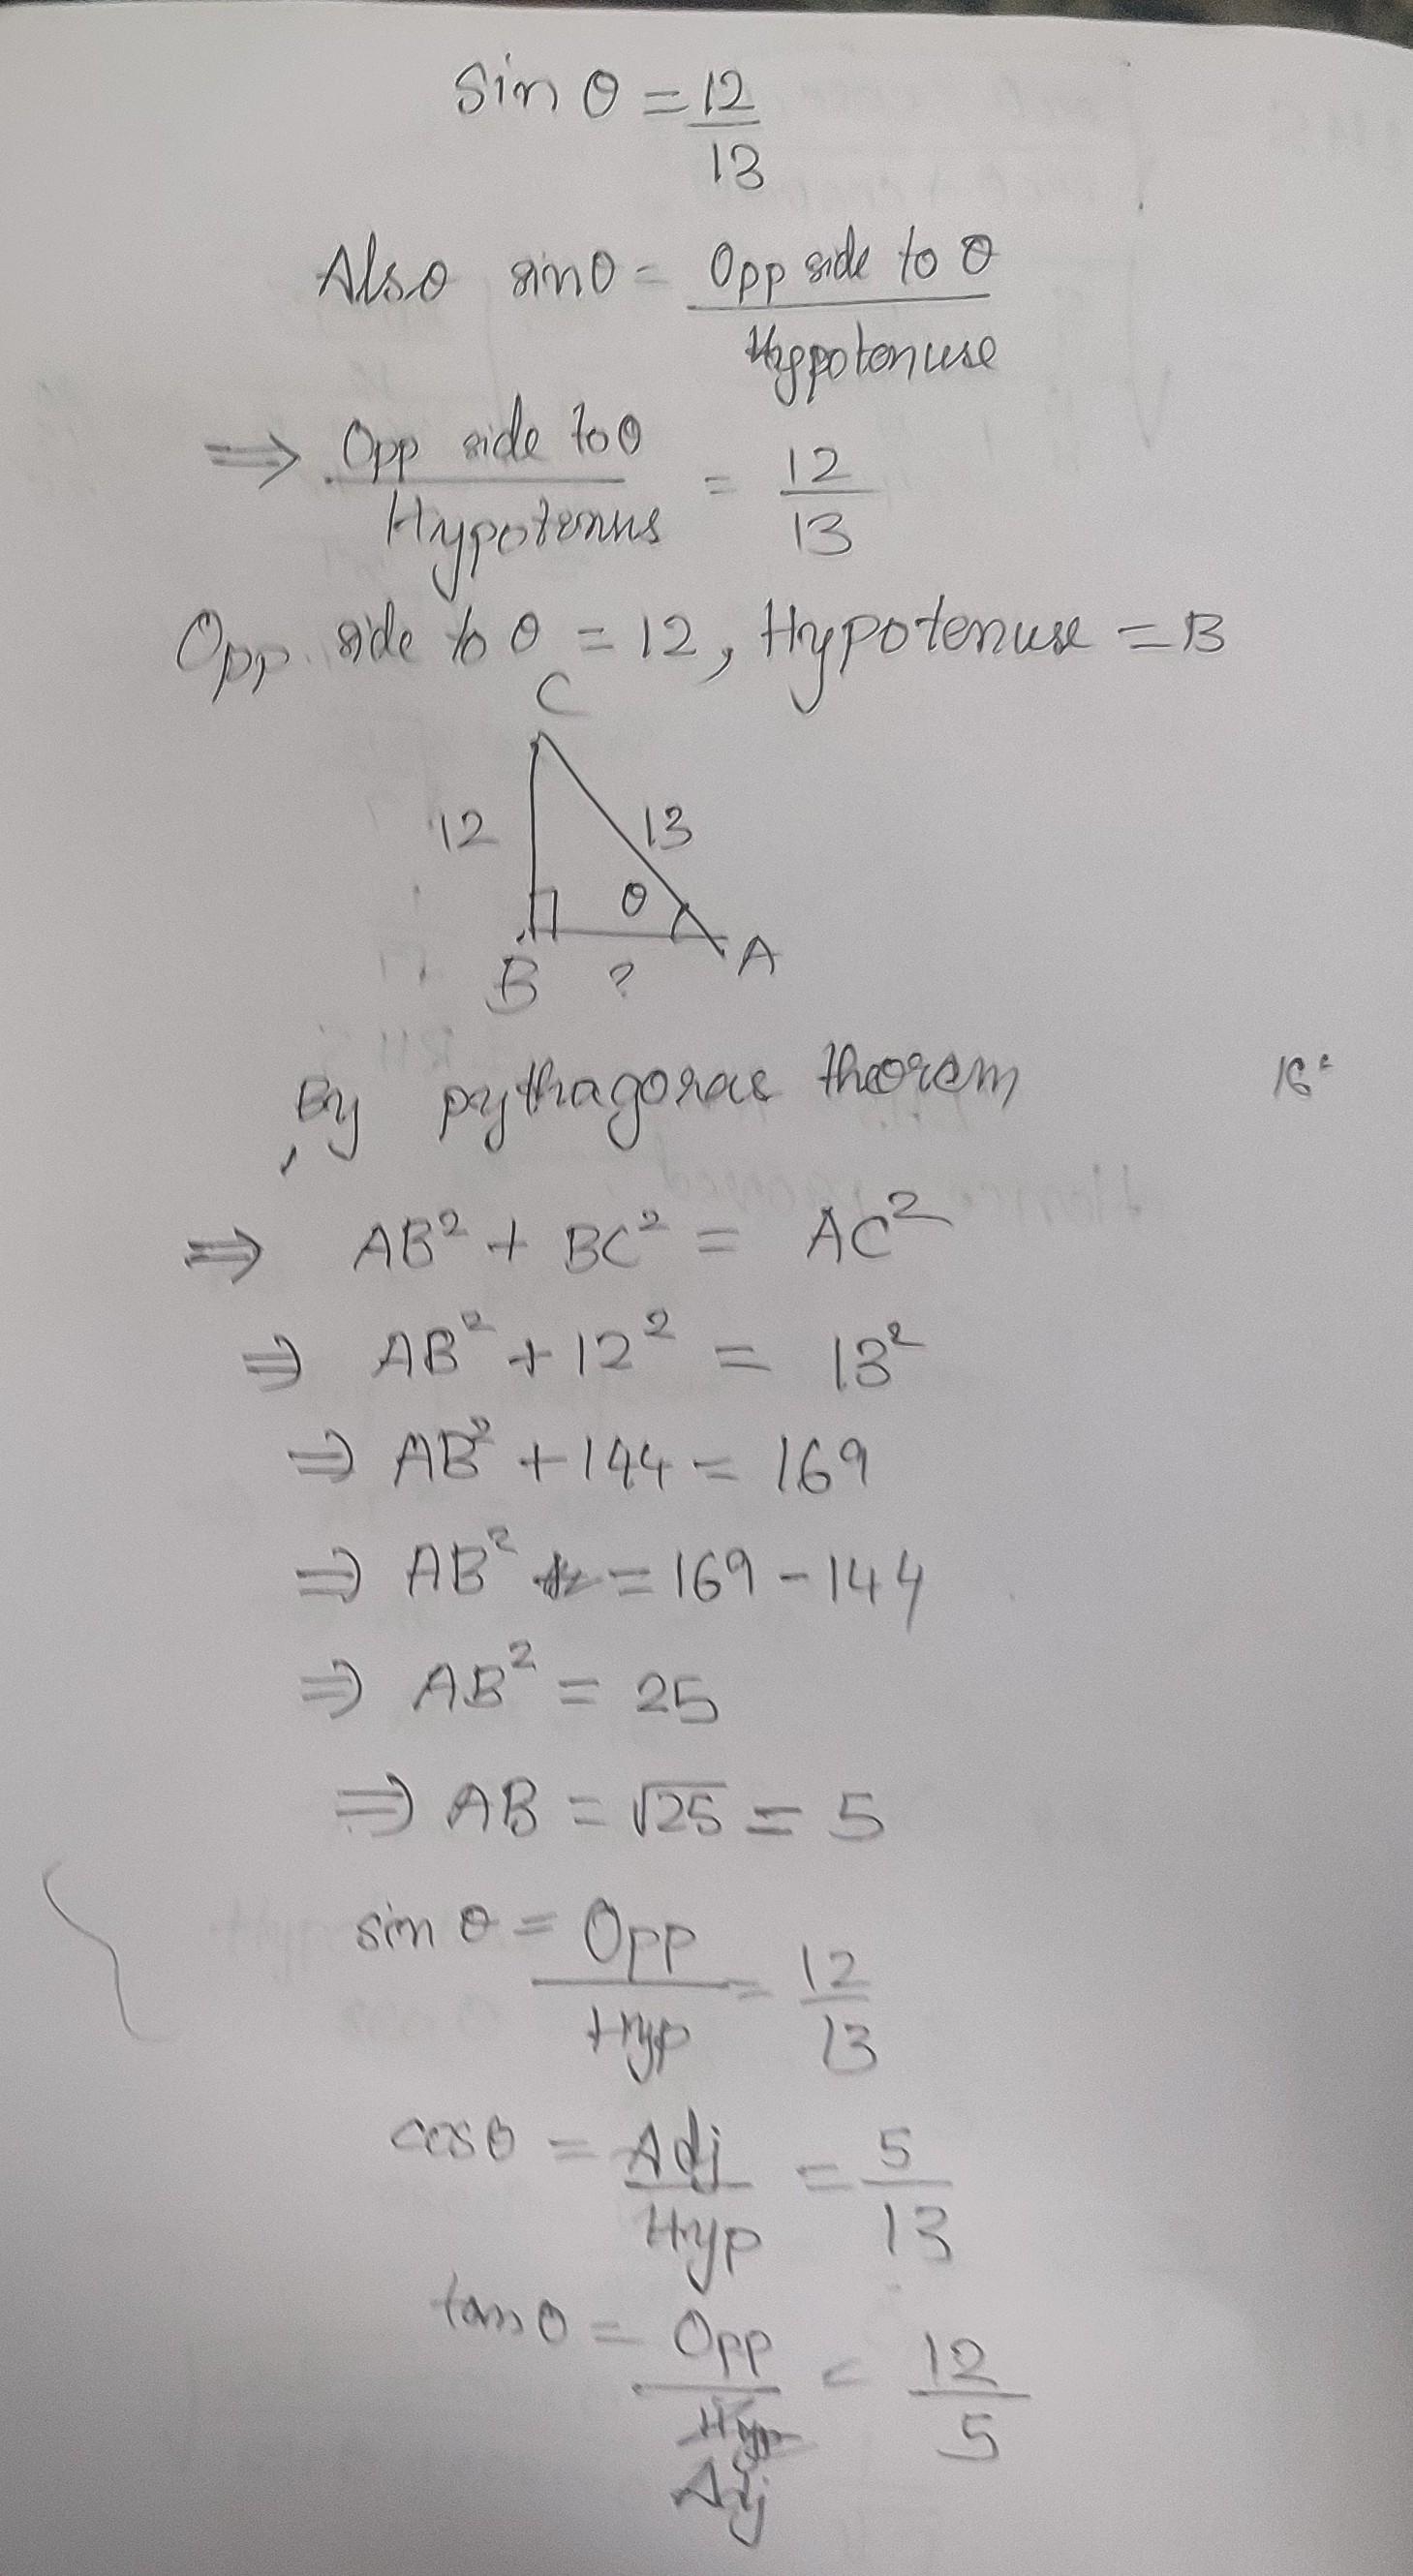 sin θ = 12/13
Also sinθ = Opp side to θ/Hypotenuse
⇒ Opp side to θ/Hypotenus = 12/13
Opp. side to θ = 12, Hypotenuse = 13
C
12 13
θ
B ? A
By pythagoras theorem 16²
⇒ AB² + BC² = AC²
⇒ AB² + 12² = 13²
⇒ AB² + 144 = 169
⇒ AB² = 169 - 144
⇒ AB² = 25
⇒ AB = √25 = 5
sin θ = Opp/Hyp = 12/13
cosθ = Adj/Hyp = 5/13
tanθ = Opp/Adj = 12/5